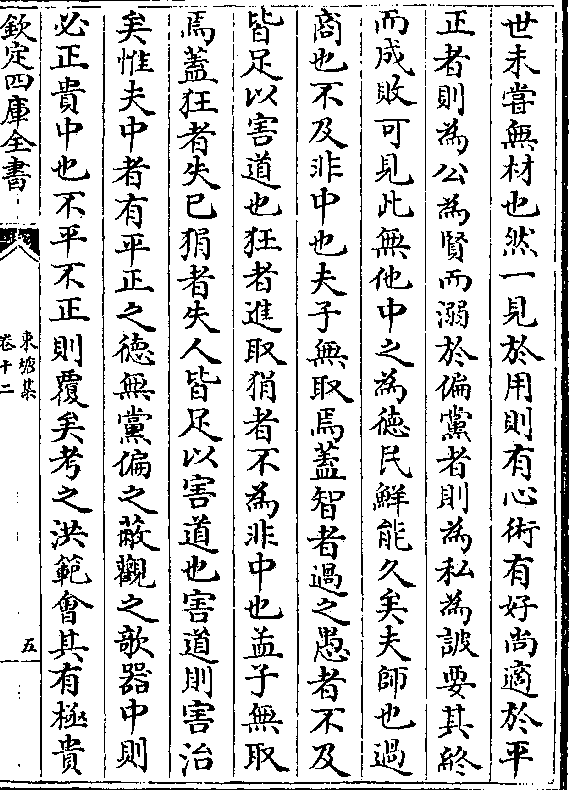 世未嘗無材也然一見於用則有心術有好尚適於平
正者則為公為賢而溺於偏黨者則為私為詖要其終
而成敗可見此無他中之為德民鮮能久矣夫師也過
商也不及非中也夫子無取焉蓋智者過之愚者不及
皆足以害道也狂者進取狷者不為非中也孟子無取
焉蓋狂者失已狷者失人皆足以害道也害道則害治
矣惟夫中者有平正之德無黨偏之蔽觀之欹器中則
必正貴中也不平不正則覆矣考之洪範會其有極貴
欽定四庫全書
東塘集
卷十二
五